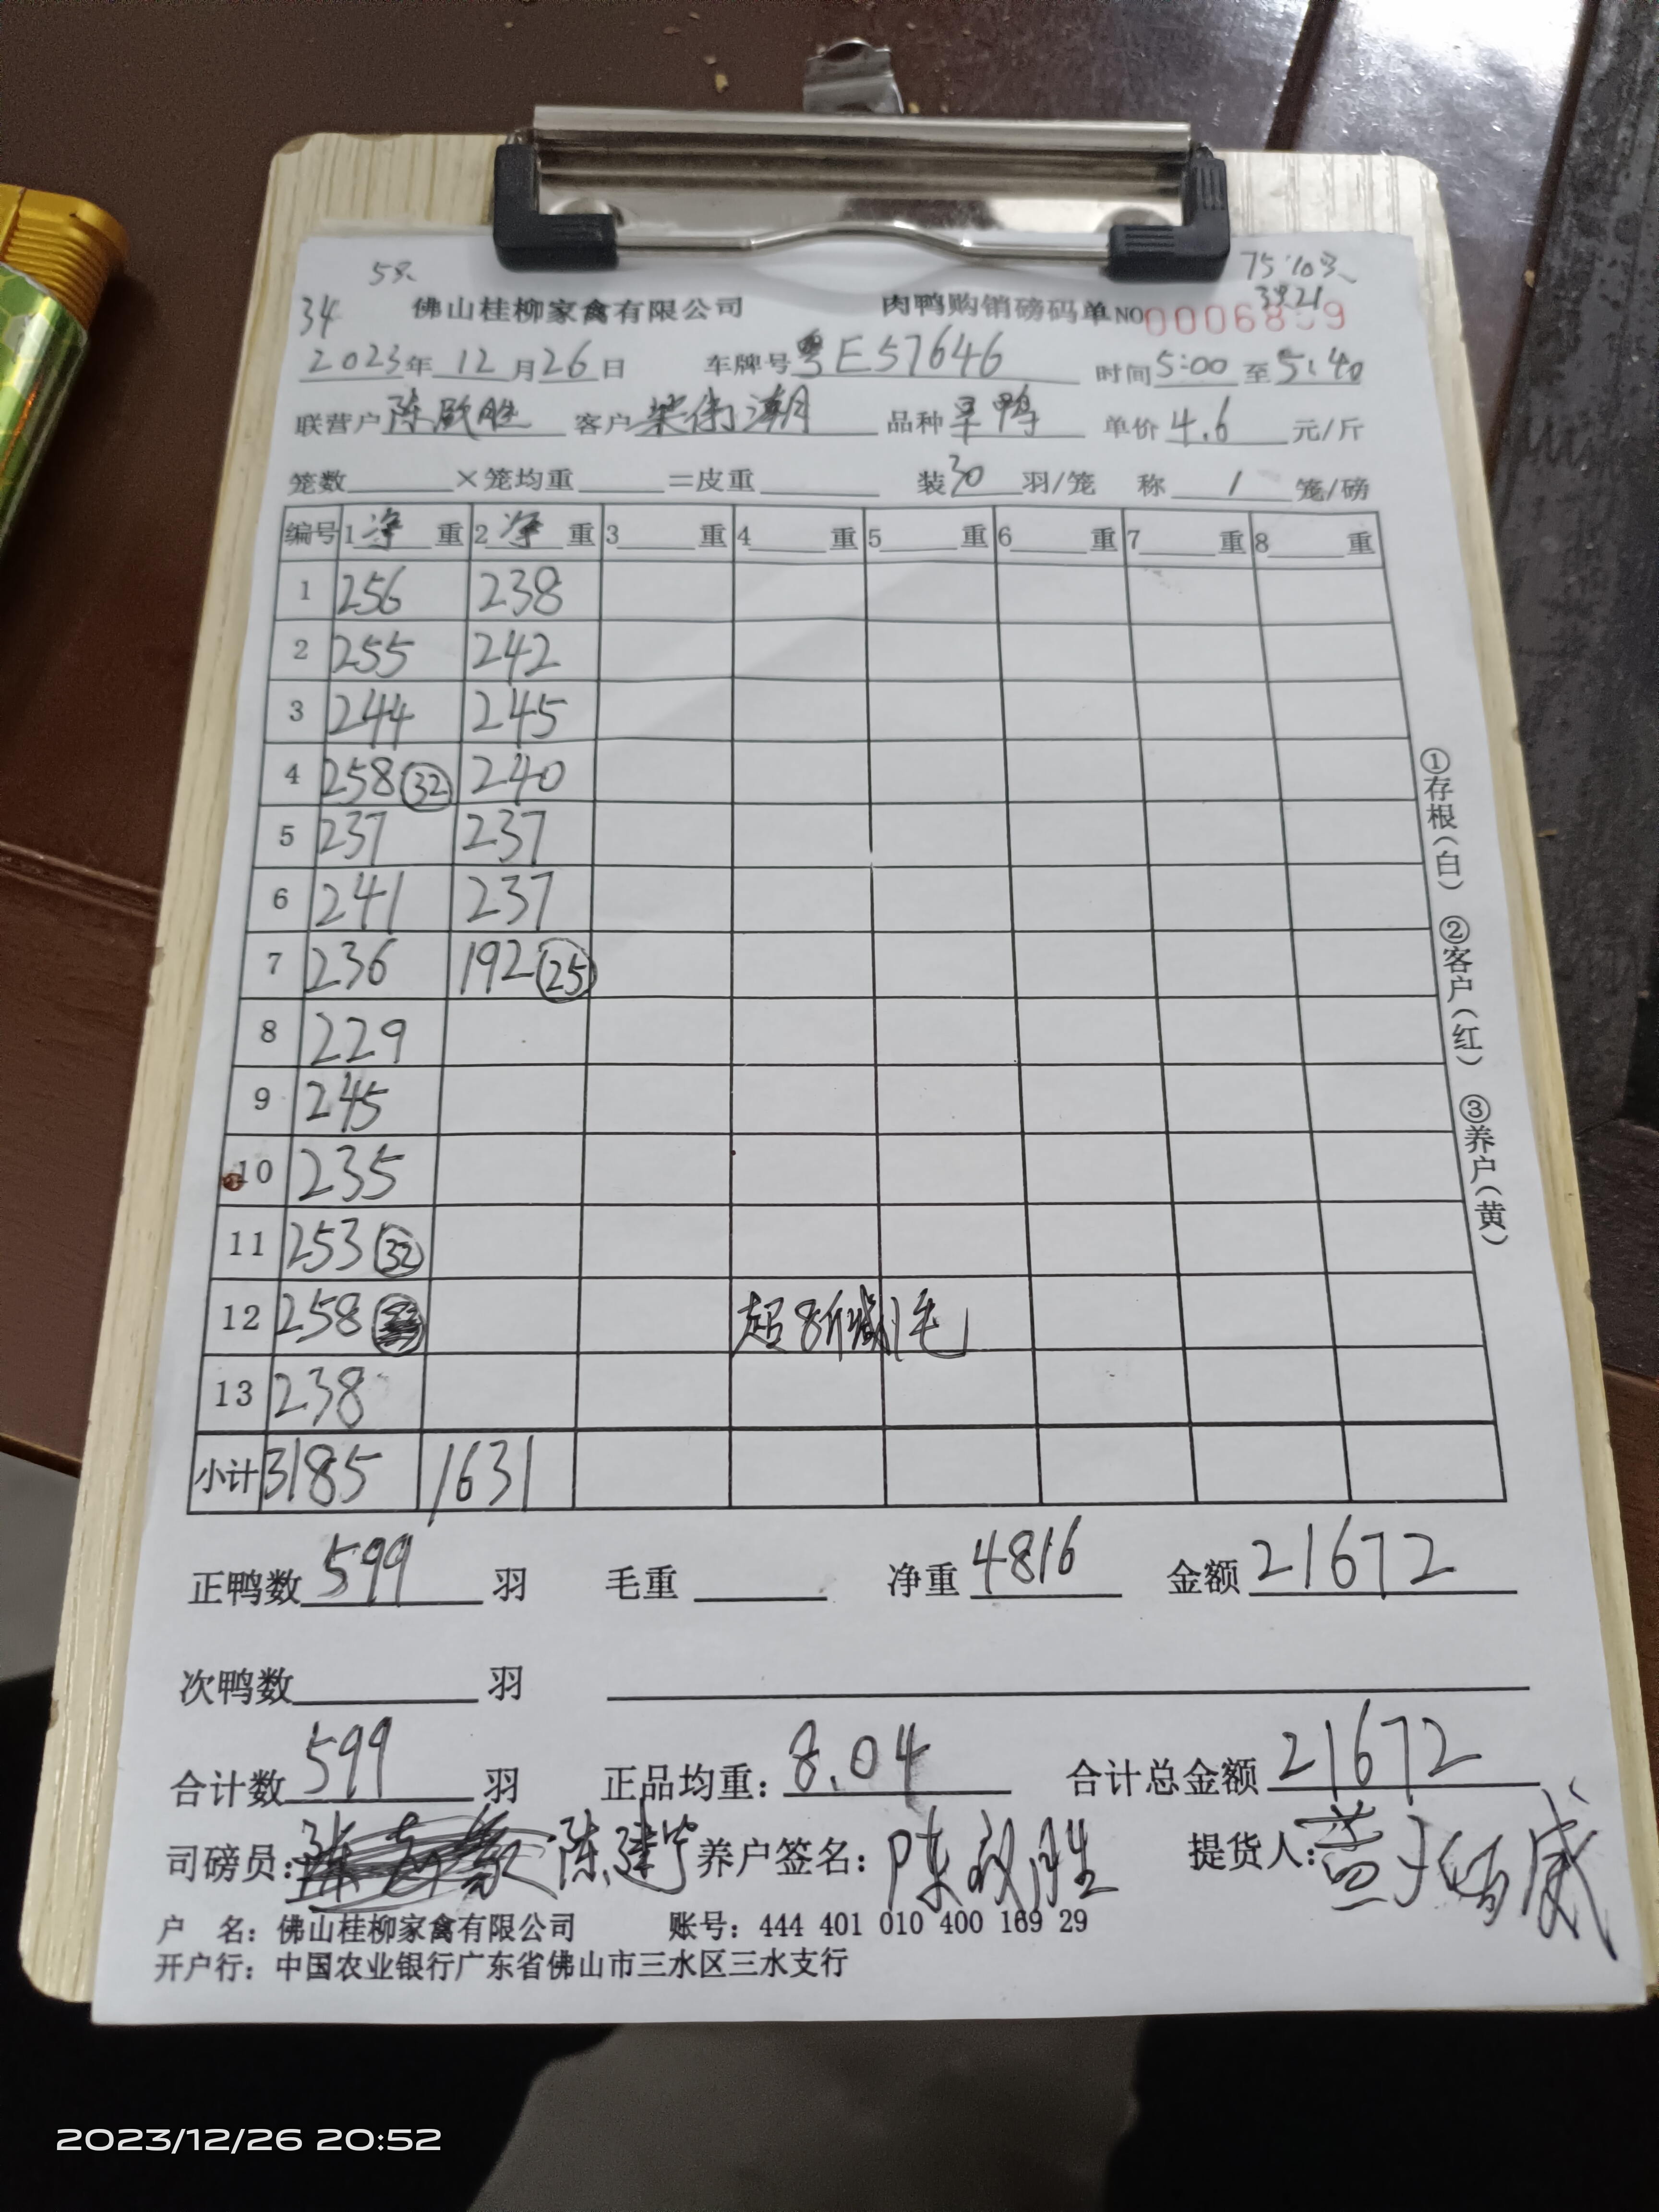 58、 75 103、
34 佛山桂柳家禽有限公司 肉鸭购销磅码单 NO 3921
2023年 12 月 26 日 车牌号 粤E57646 时间 5:00 至 5:40
联营户 陈 胜 客户 伟潮 品种 旱鸭 单价 4.6 元/斤
笼数 ×笼均重 =皮重 装 30 羽/笼 称 1 笼/磅
编号 1 净 重 2 净 重 3 重 4 重 5 重 6 重 7 重 8 重
1 256 238
2 255 242
3 244 245
4 258 32 240
5 237 237
6 241 237
7 236 192 25
8 229
9 245
10 235
11 253 32
12 258 超8斤减1毛
13 238
小计 3185 1631
正鸭数 599 羽 毛重 净重 4816 金额 21672
次鸭数 羽
合计数 599 羽 正品均重: 8.04 合计总金额 21672
司磅员: 陈建宁 养户签名: 陈 胜 提货人: 威
户 名: 佛山桂柳家禽有限公司 账号: 444 401 010 400 169 29
开户行: 中国农业银行广东省佛山市三水区三水支行
①存根(白) ②客户(红) ③养户(黄)
2023/12/26 20:52